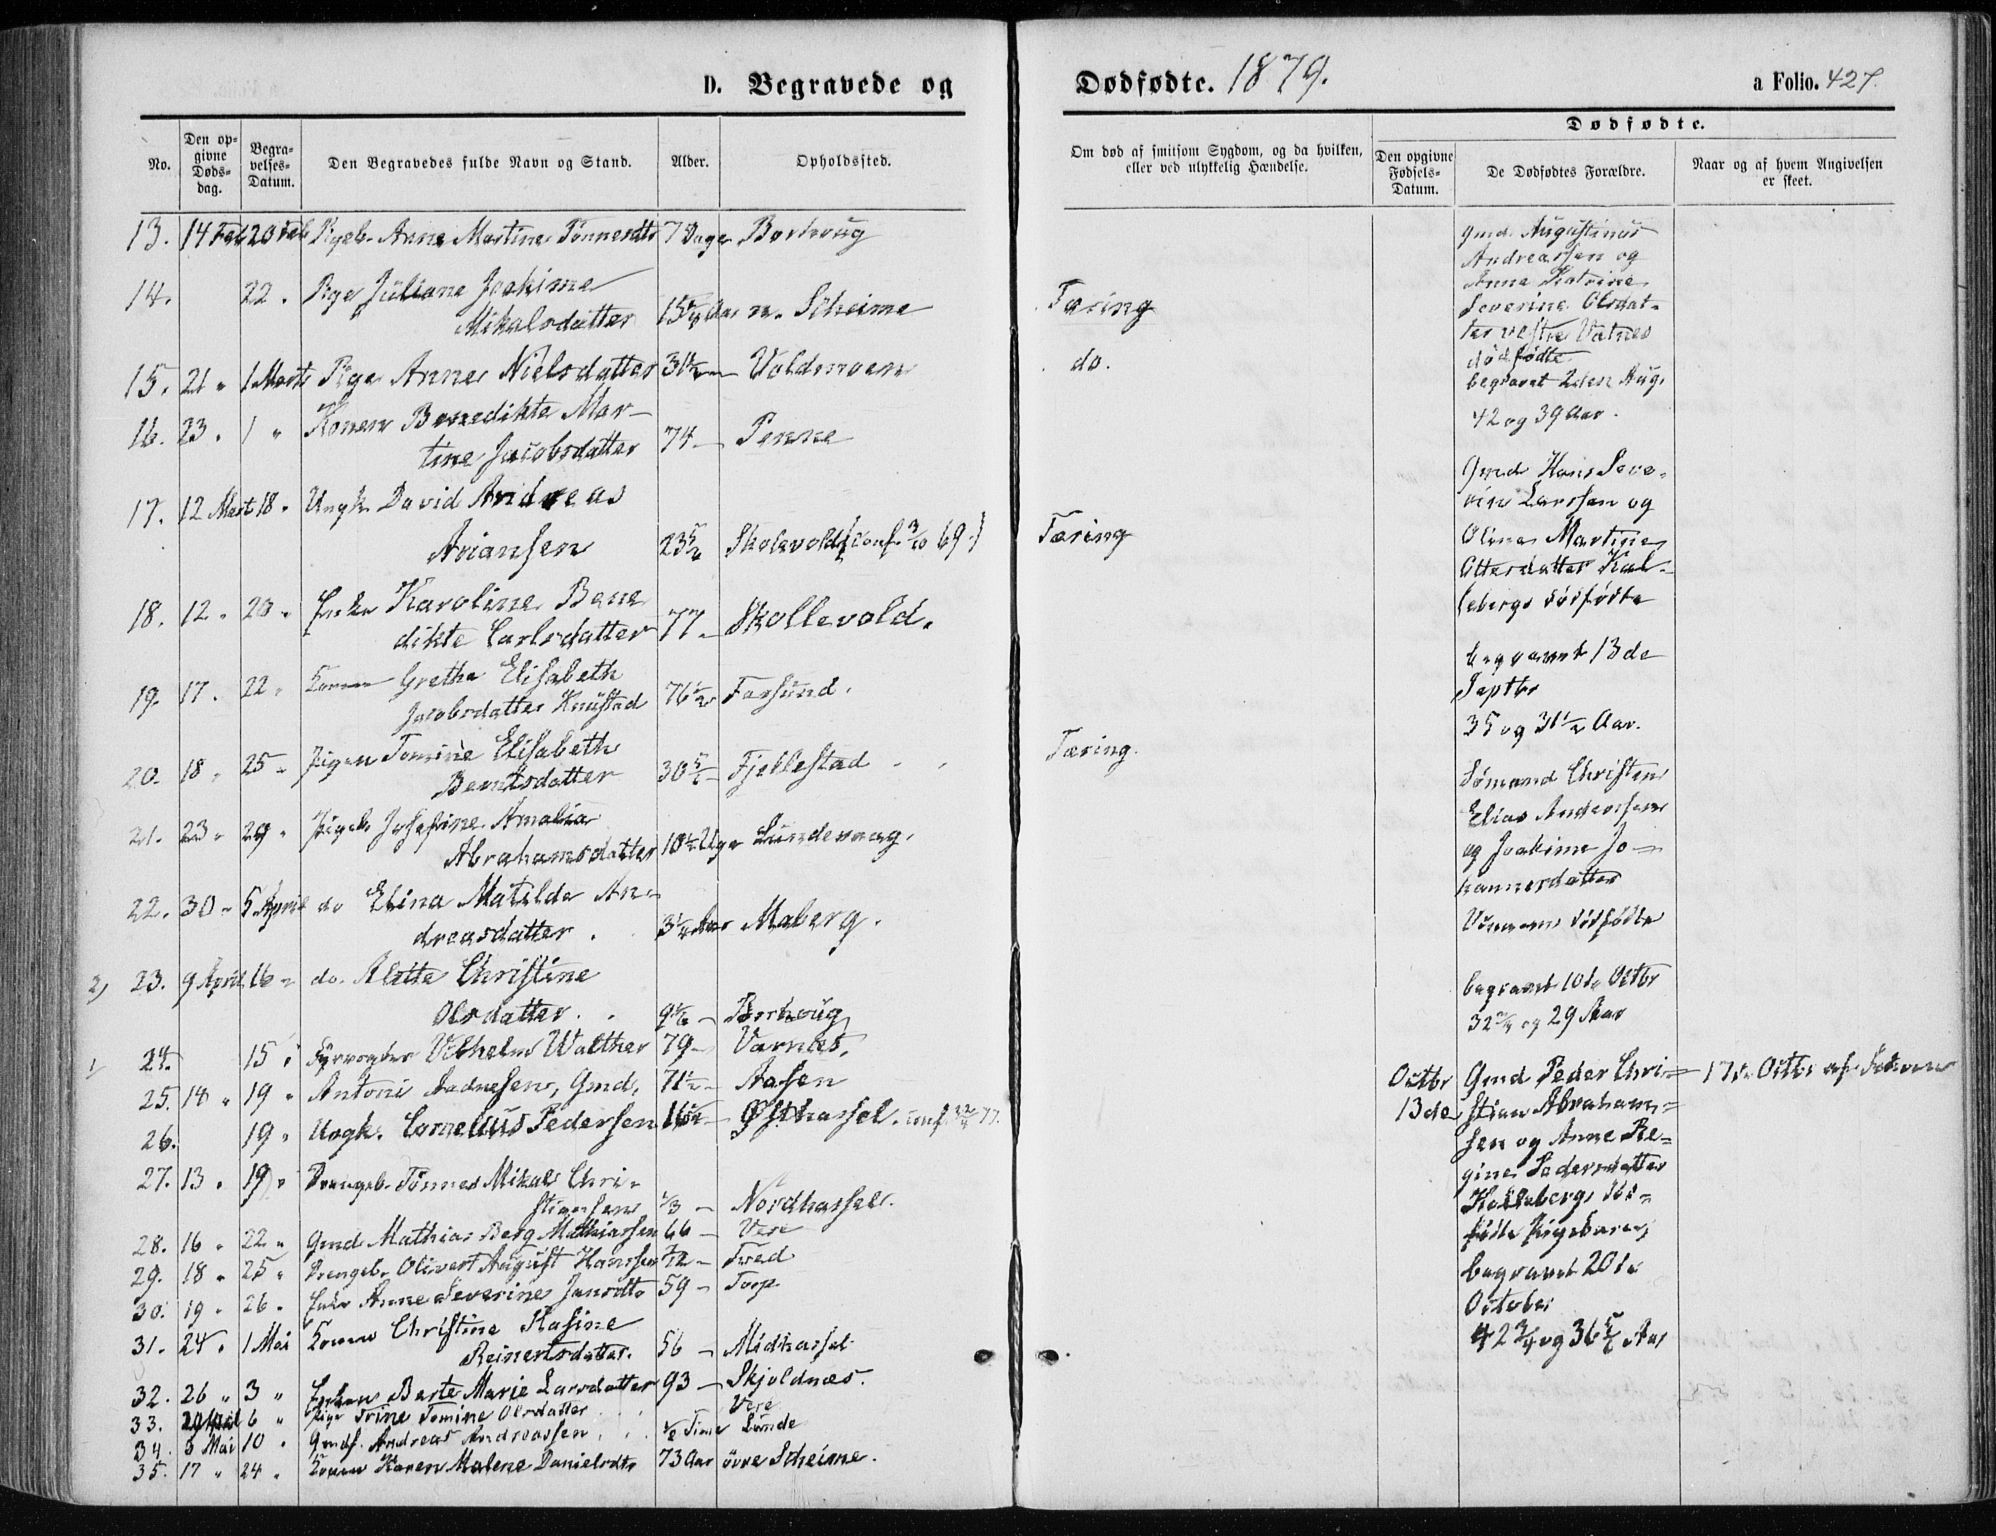 D. Begravede og
No.
Den op-
givne
Døds-
dag.
Begra-
velses-
Datum.
Den Begravedes fulde Navn og Stand.
Alder.
Opholdssted.
13. 14 Feb 20 Feb Pigeb. Anne Martine Tønnesdtr 7 Dage Borhoug
14. 22. Pige Juliane Joakime
Mikalsdatter 15 Aar n. Scheime
15. 21 " 1 Marts Pige Anne Nielsdatter 31½ — Voldmoen
16. 23 " 1 " Konen Benedikte Mar-
tine Jacobsdatter 74 — Penne
17. 12 Mart 18 " Ungk. David Andreas
Ariansen 23 Skolevold (conf. 3/10 69.)
18. 12 " 20 " Enke Karoline Bene
dikte Carlsdatter 77 — Skollevold.
19. 17. 22 " Konen Grethe Elisabeth
Jacobsdatter Knustad 76½ Farsund.
20. 18 " 25 " Pigen Tomine Elisabeth
Berntsdatter 30 — Fjellestad
21. 23 " 29 " Pigeb. Josefine Amalia
Abrahamsdatter 10½ Uge Lundevaag.
22. 30 " 5 April do Elina Matilde An-
dreasdatter. 3¼ Aar Maberg.
2) 23. 9 April 16 " do. Aletta Christine
Olsdatter. 9 — Borhoug
1) 24. 15 " Fyrvogter Vilhelm Walther 79 — Varnes.
25. 14 " 19 " Antoni Aadnesen, Gmd. 71½ — Aasen
26. 19 " Ungk. Cornelius Pedersen 16 — Østhassel. conf.
27. 13 " 19 " Drengeb. Tønnes Mikal Chri-
stiansen 1/3 — Nordhassel.
28. 16 " 22 " Gmd Mathias Berg Mathiassen 66 — Vere
29. 18 " 25 " Drengeb. Olivert August Hanssen — Tved
30. 19 " 26 " Enke Anne Severine Jansdtr 59 — Torp
31. 24 " 1 Mai Konen Christine Rasine
Reinertsdatter. 56 — Midhassel
32. 26 " 3 " Enken Berte Marie Larsdatter 93 — Skjoldnæs.
33. 29 April 6 " Pige Trine Tomine Olsdatter Vere
34. 5 Mai 10 " Gmds. Andreas Andreassen ½ Time Lunde
35. 17 " 24 " Konen Karen Malene Danielsdtr 73 Aar øvre Scheime.
Dødfødte. 1879.
a Folio. 427.
Om død af smitsom Sygdom, og da hvilken,
eller ved ulykkelig Hændelse.
Dødfødte.
Den opgivne
Fødsels-
Datum.
De Dødfødtes Forældre.
Naar og af hvem Angivelsen
er skeet.
Tæring
do.
Tæring
Tæring.
Gmd. Augustinus
Andreassen og
Anne Katrine
Severine Olsdat-
ter vestre Vatnes
dødfødte
begravet 2den Aug.
42 og 39 Aar.
Gmd Hans Seve-
rin Larssen og
Oline Martine
Ottersdatter Kal-
leberg dødfødte
begravet 13de
Septbr
35 og 31½ Aar.
Sømand Christen
Elias Anderssen
og Joakime Jo-
hannesdatter
dødfødte
begravet 10de Octbr
32¾ og 29 Aar
Octbr
13de
Gmd Peder Chri-
stian Abraham-
sen og Anne Re-
gine Pedersdatter
Kalleberg død-
fødte Pigebarn,
begravet 20de
October
42¾ og 36 Aar
17de Octbr af Faderen